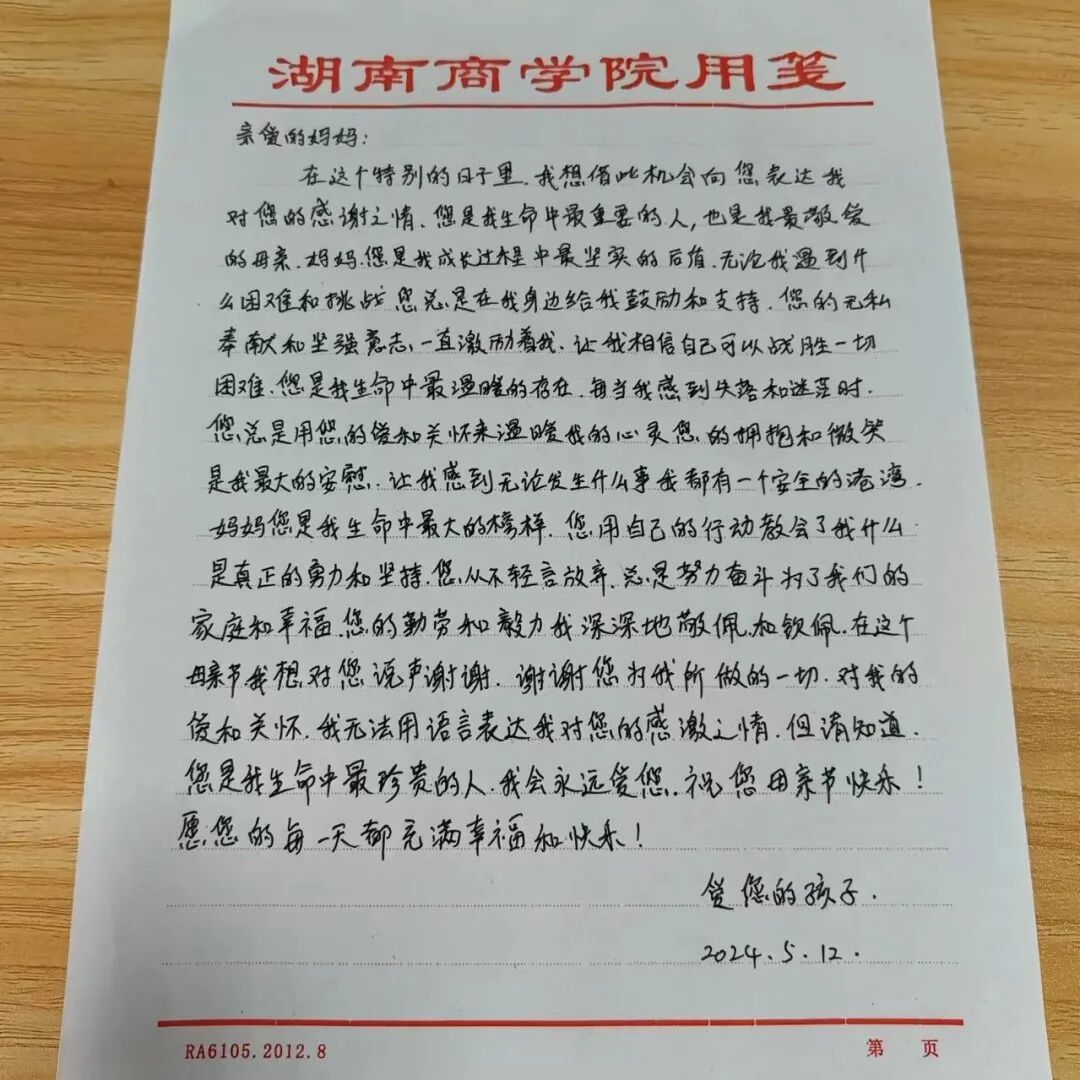 湖南商学院用笺
亲爱的妈妈:
在这个特别的日子里.我想借此机会向您表达我
对您的感谢之情.您是我生命中最重要的人,也是我最敬爱
的母亲.妈妈.您是我成长过程中最坚实的后盾.无论我遇到什
么困难和挑战您总是在我身边给我鼓励和支持.您的无私
奉献和坚强意志.一直激励着我.让我相信自己可以战胜一切
困难.您是我生命中最温暖的存在.每当我感到失落和迷茫时.
您总是用您的爱和关怀来温暖我的心灵您的拥抱和微笑
是我最大的安慰.让我感到无论发生什么事我都有一个安全的港湾.
妈妈您是我生命中最大的榜样.您用自己的行动教会了我什么
是真正的勇力和坚持.您从不轻言放弃.总是努力奋斗为了我们的
家庭和幸福.您的勤劳和毅力我深深地敬佩和钦佩.在这个
母亲节我想对您说声谢谢.谢谢您为我所做的一切.对我的
爱和关怀.我无法用语言表达我对您的感激之情.但请知道.
您是我生命中最珍贵的人.我会永远爱您.祝您母亲节快乐!
愿您的每一天都充满幸福和快乐!
爱您的孩子.
2024.5.12.
RA6105.2012.8
第 页